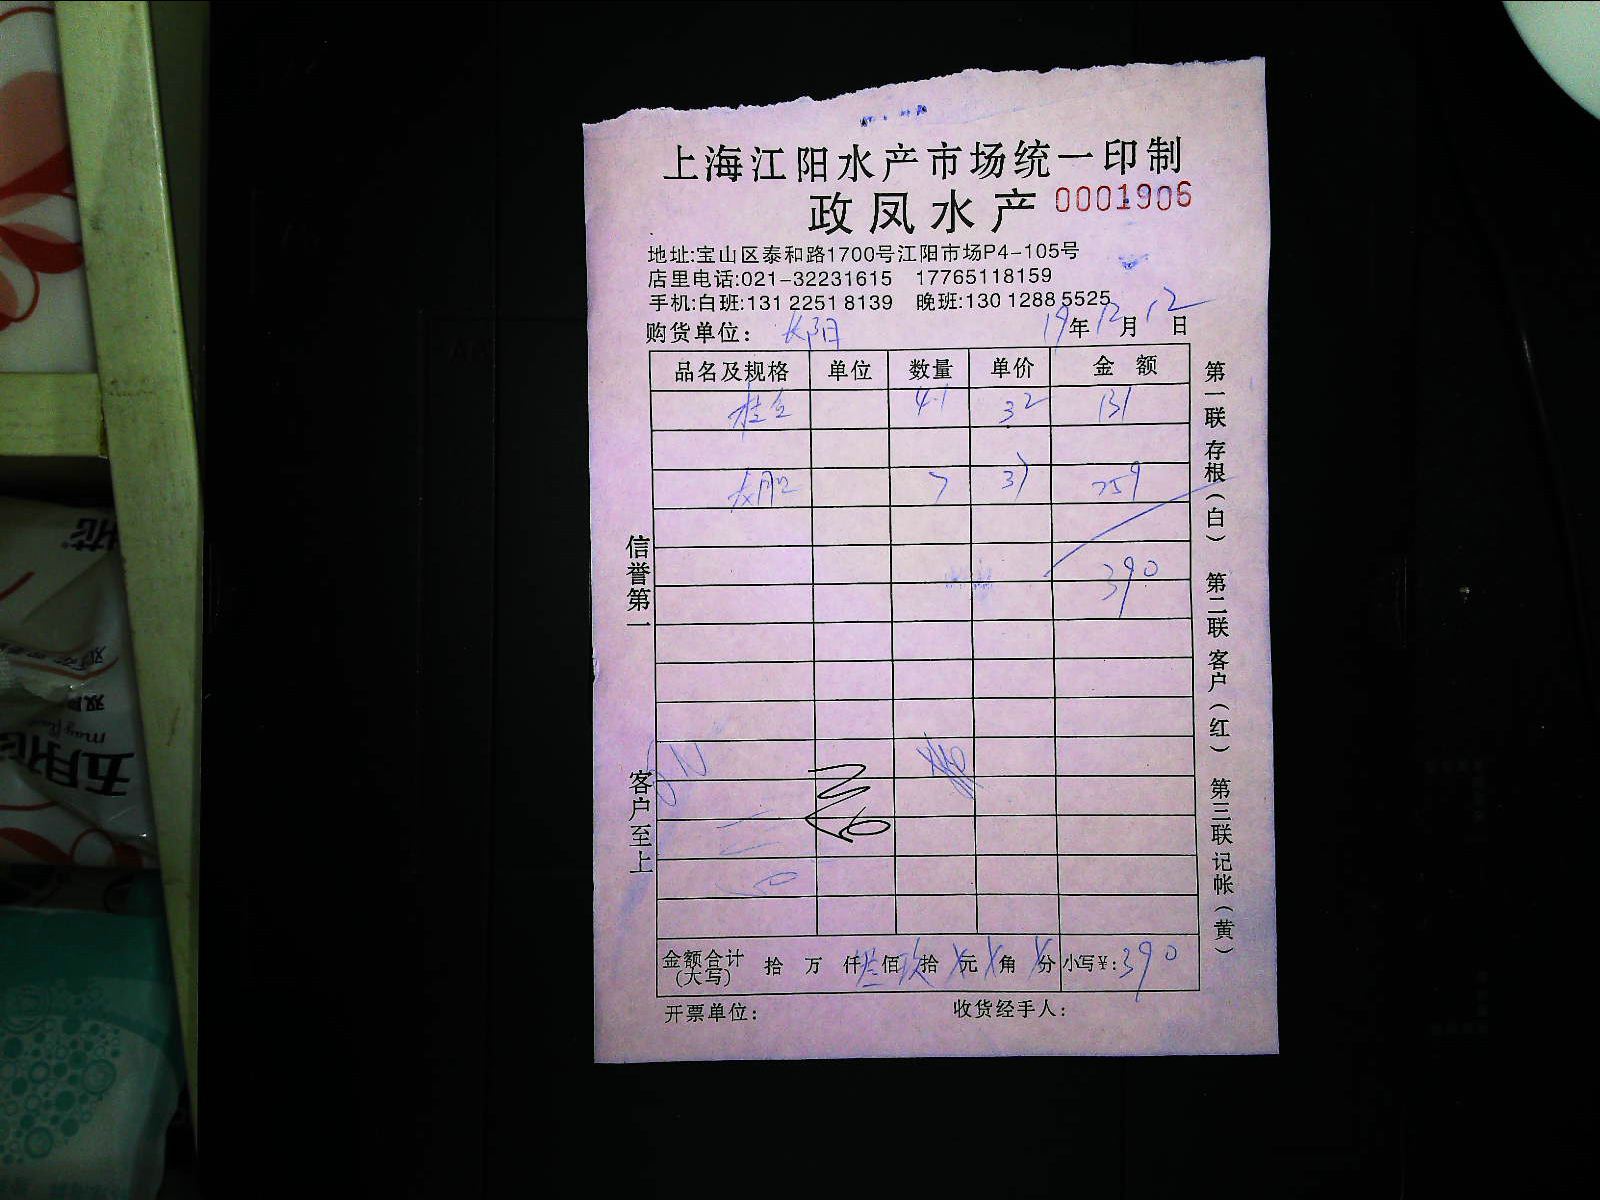 上海江阳水产市场统一印制
政凤水产 0001906
地址:宝山区泰和路1700号江阳市场P4-105号
店里电话:021-32231615 17765118159
手机:白班:131 2251 8139 晚班:130 1288 5525
购货单位: 长阳 19年12月12日
品名及规格 单位 数量 单价 金额
桂鱼 4.1 32 131
7 37 259
390
金额合计(大写) 拾 万 仟叁佰玖拾 元 角 分 小写¥:390
开票单位: 收货经手人:
信誉第一
客户至上
第一联存根(白) 第二联客户(红) 第三联记帐(黄)
五月花